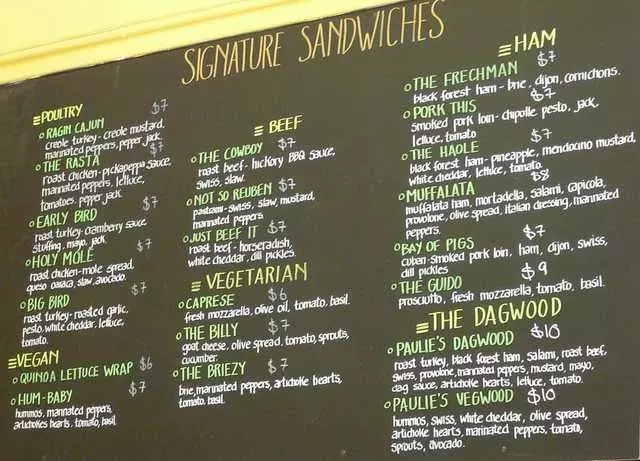 SIGNATURE SANDWICHES
POULTRY
RAGIN CAJUN $7
creole turkey - creole mustard,
marinated peppers, pepper jack.
THE RASTA $7
roast chicken - pickapeppa sauce,
marinated peppers, lettuce,
tomatoes - pepper jack.
EARLY BIRD $7
roast turkey - cranberry sauce,
stuffing, mayo, jack.
HOLY MOLÉ $7
roast chicken - mole spread,
queso oaxaca, slaw, avocado.
BIG BIRD $7
roast turkey - roasted garlic,
pesto, white cheddar, lettuce,
tomato.
VEGAN
QUINOA LETTUCE WRAP $6
HUM-BABY $7
hummos, marinated peppers,
artichokes hearts, tomato, basil.
BEEF
THE COWBOY $7
roast beef - hickory BBQ sauce,
swiss, slaw.
NOT SO REUBEN $7
pastrami - swiss, slaw, mustard,
marinated peppers
JUST BEEF IT $7
roast beef - horseradish,
white cheddar, dill pickles.
VEGETARIAN
CAPRESE $6
fresh mozzarella, olive oil, tomato, basil.
THE BILLY $7
goat cheese, olive spread, tomato, sprouts,
cucumber.
THE BRIEZY $7
brie, marinated peppers, artichoke hearts,
tomato, basil.
HAM
THE FRECHMAN $7
black forest ham - brie, dijon, cornichons.
PORK THIS $7
smoked pork loin - chipotle pesto, jack,
lettuce, tomato
THE HAOLE $7
black forest ham - pineapple, mendocino mustard,
white cheddar, lettuce, tomato.
MUFFALATA $8
muffalata ham, mortadella, salami, capicola,
provolone, olive spread, italian dressing, marinated
peppers.
BAY OF PIGS $7
cuban - smoked pork loin, ham, dijon, swiss,
dill pickles
THE GUIDO $9
prosciutto, fresh mozzarella, tomato, basil.
THE DAGWOOD
PAULIE'S DAGWOOD $10
roast turkey, black forest ham, salami, roast beef,
swiss, provolone, marinated peppers, mustard, mayo,
dag sauce, artichoke hearts, lettuce, tomato.
PAULIE'S VEGWOOD $10
hummos, swiss, white cheddar, olive spread,
artichoke hearts, marinated peppers, tomato,
sprouts, avocado.